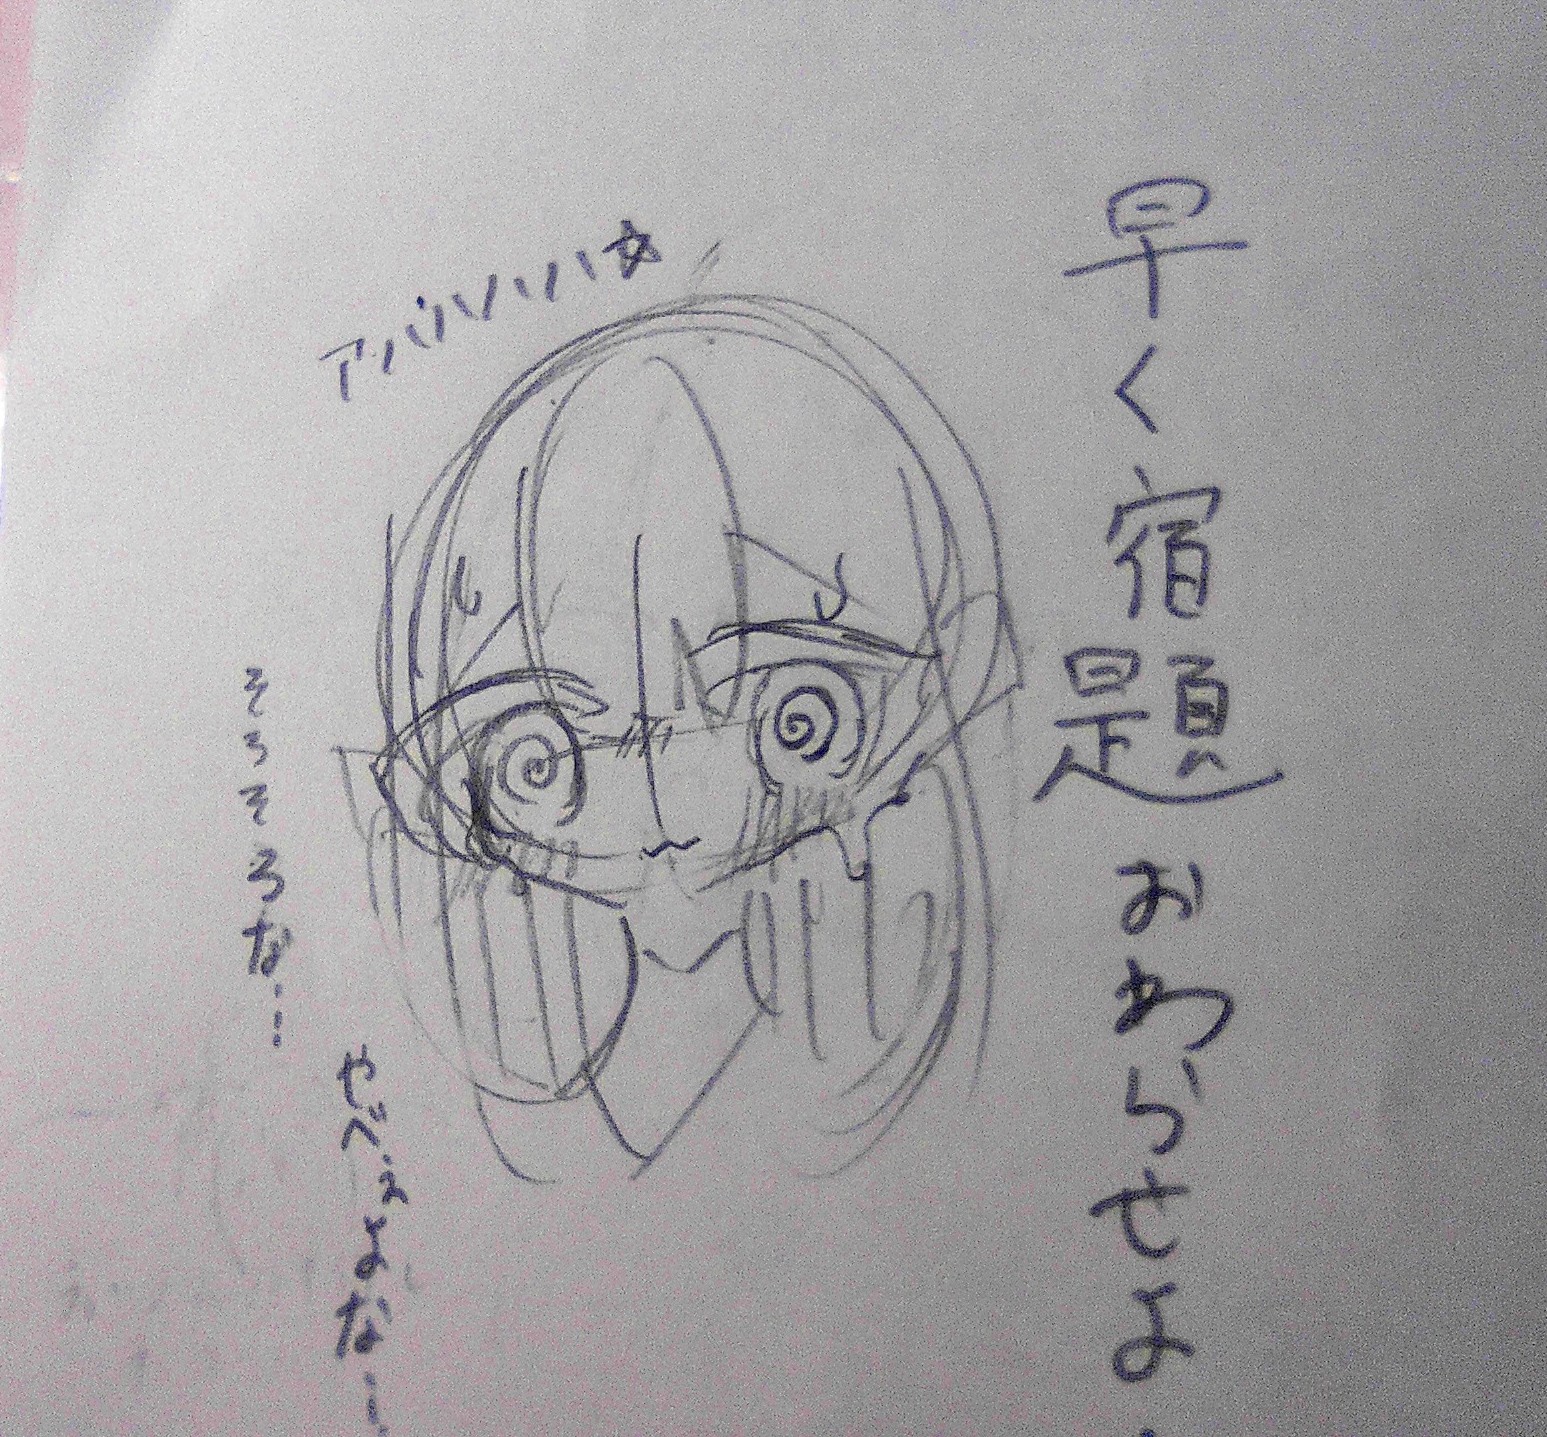 早く宿題おわらせよ
アハハハハハ☆
そろそろな…
やべぇよな…